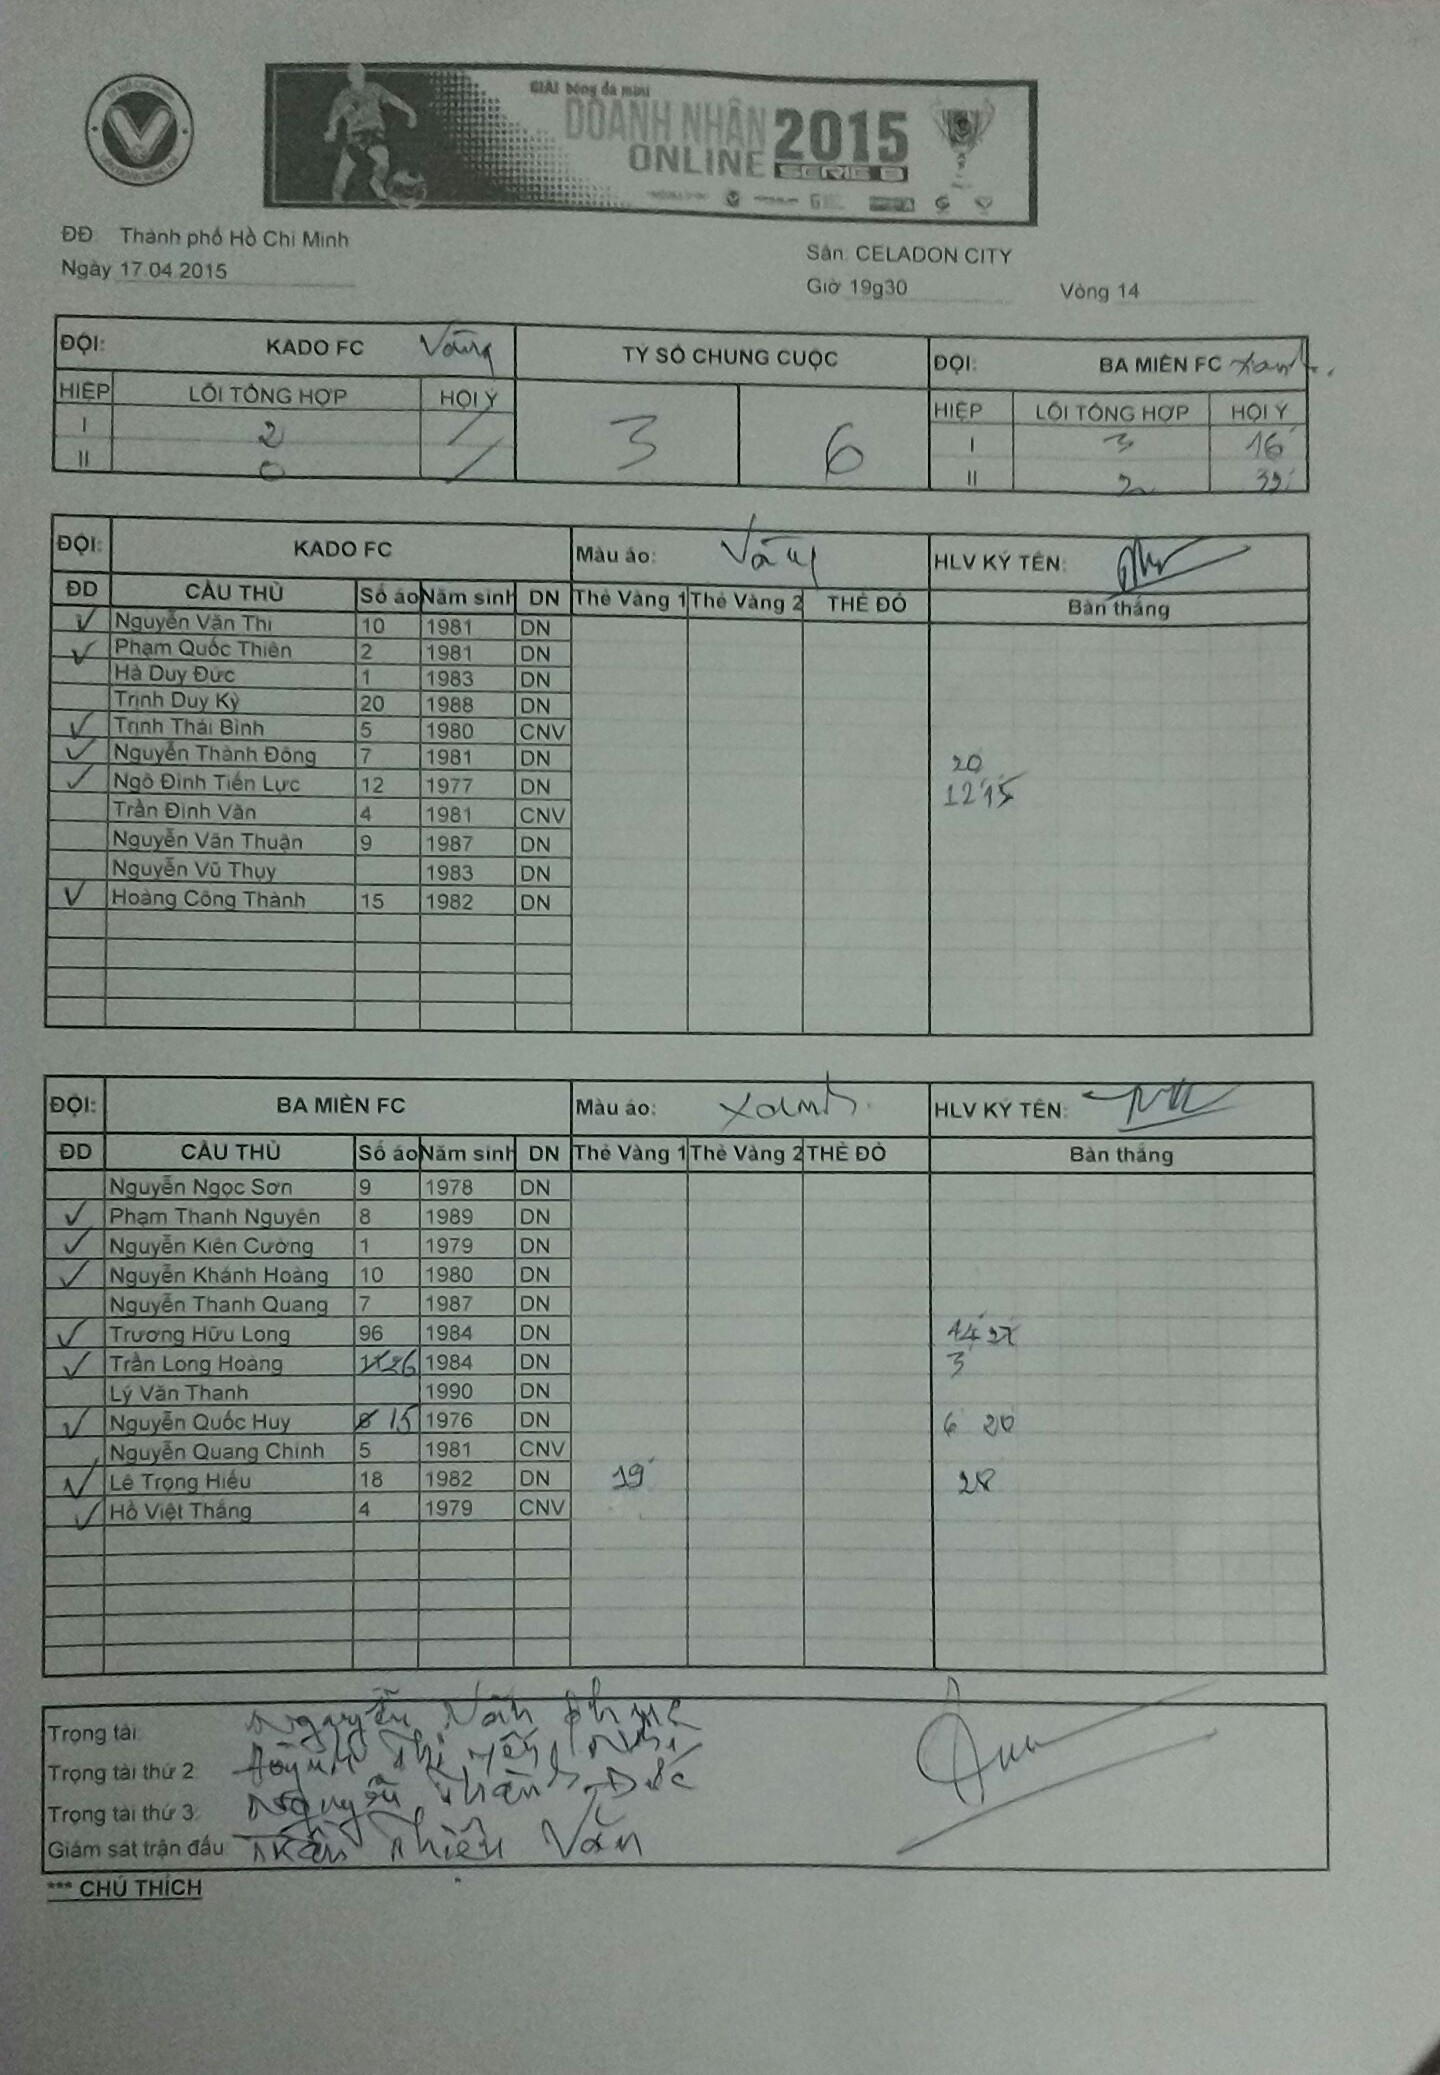 GIẢI bóng đá mini
DOANH NHÂN 2015
ONLINE SERIE B
ĐĐ: Thành phố Hồ Chí Minh
Sân: CELADON CITY
Ngày 17.04.2015
Giờ 19g30 Vòng 14
ĐỘI: KADO FC Vàng TỶ SỐ CHUNG CUỘC ĐỘI: BA MIỀN FC xanh
HIỆP LỖI TỔNG HỢP HỘI Ý 3 6 HIỆP LỖI TỔNG HỢP HỘI Ý
I 2 / I 3 16'
II 0 / II 2 32'
ĐỘI: KADO FC Màu áo: Vàng HLV KÝ TÊN:
ĐD CẦU THỦ Số áo Năm sinh DN Thẻ Vàng 1 Thẻ Vàng 2 THẺ ĐỎ Bàn thắng
✓ Nguyễn Văn Thi 10 1981 DN
✓ Phạm Quốc Thiên 2 1981 DN
Hà Duy Đức 1 1983 DN
Trịnh Duy Kỳ 20 1988 DN
✓ Trịnh Thái Bình 5 1980 CNV
✓ Nguyễn Thành Đông 7 1981 DN 20
✓ Ngô Đình Tiến Lực 12 1977 DN 12' 15'
Trần Đình Văn 4 1981 CNV
Nguyễn Văn Thuận 9 1987 DN
Nguyễn Vũ Thụy 1983 DN
✓ Hoàng Công Thành 15 1982 DN
ĐỘI: BA MIỀN FC Màu áo: xanh HLV KÝ TÊN:
ĐD CẦU THỦ Số áo Năm sinh DN Thẻ Vàng 1 Thẻ Vàng 2 THẺ ĐỎ Bàn thắng
Nguyễn Ngọc Sơn 9 1978 DN
✓ Phạm Thanh Nguyên 8 1989 DN
✓ Nguyễn Kiên Cường 1 1979 DN
✓ Nguyễn Khánh Hoàng 10 1980 DN
Nguyễn Thanh Quang 7 1987 DN
✓ Trương Hữu Long 96 1984 DN
✓ Trần Long Hoàng 26 1984 DN 3
Lý Văn Thanh 1990 DN
✓ Nguyễn Quốc Huy 15 1976 DN 6 20
Nguyễn Quang Chính 5 1981 CNV
✓ Lê Trọng Hiếu 18 1982 DN 19' 28
✓ Hồ Việt Thắng 4 1979 CNV
Trọng tài: Nguyễn Văn Phúc
Trọng tài thứ 2: Huỳnh Thị Yến Nhi
Trọng tài thứ 3: Nguyễn Thành Đức
Giám sát trận đấu: Trần Thiên Văn
*** CHÚ THÍCH